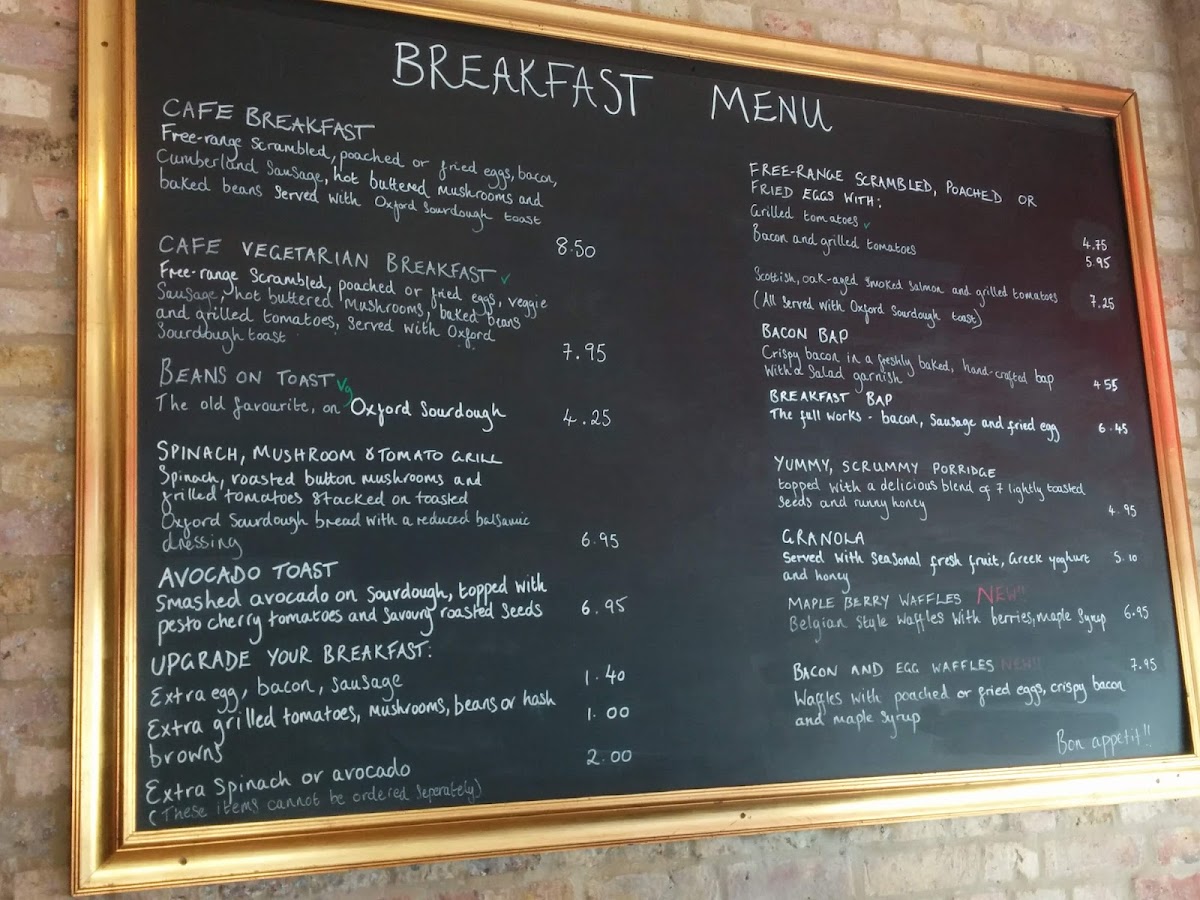 BREAKFAST MENU
CAFE BREAKFAST
Free-range Scrambled, poached or fried eggs, bacon,
Cumberland Sausage, hot buttered mushrooms and
baked beans Served with Oxford Sourdough toast
8.50
CAFE VEGETARIAN BREAKFAST v
Free-range Scrambled, poached or fried eggs, veggie
Sausage, hot buttered mushrooms, baked beans
and grilled tomatoes, Served with Oxford
Sourdough toast
7.95
BEANS ON TOAST Vg
The old favourite, on Oxford Sourdough 4.25
SPINACH, MUSHROOM & TOMATO GRILL
Spinach, roasted button mushrooms and
grilled tomatoes stacked on toasted
Oxford Sourdough bread with a reduced balsamic
dressing 6.95
AVOCADO TOAST
Smashed avocado on Sourdough, topped with
pesto cherry tomatoes and Savoury roasted Seeds 6.95
UPGRADE YOUR BREAKFAST:
Extra egg, bacon, sausage 1.40
Extra grilled tomatoes, mushrooms, beans or hash
browns 1.00
Extra Spinach or avocado 2.00
(These items cannot be ordered Seperately)
FREE-RANGE SCRAMBLED, POACHED OR
FRIED EGGS WITH:
Grilled tomatoes v 4.75
Bacon and grilled tomatoes 5.95
Scottish, oak-aged Smoked Salmon and grilled tomatoes 7.25
(All Served with Oxford Sourdough toast)
BACON BAP
Crispy bacon in a freshly baked, hand-crafted bap
With a Salad garnish 4 55
BREAKFAST BAP
The full works - bacon, Sausage and fried egg 6.45
YUMMY, SCRUMMY PORRIDGE
topped with a delicious blend of 7 lightly toasted
Seeds and runny honey 4.95
GRANOLA
Served with Seasonal fresh fruit, Greek yoghurt 5.10
and honey
MAPLE BERRY WAFFLES NEW!!
Belgian Style Waffles With berries, maple Syrup 6.95
BACON AND EGG WAFFLES NEW!! 7.95
Waffles with poached or fried eggs, crispy bacon
and maple Syrup
Bon appetit!!